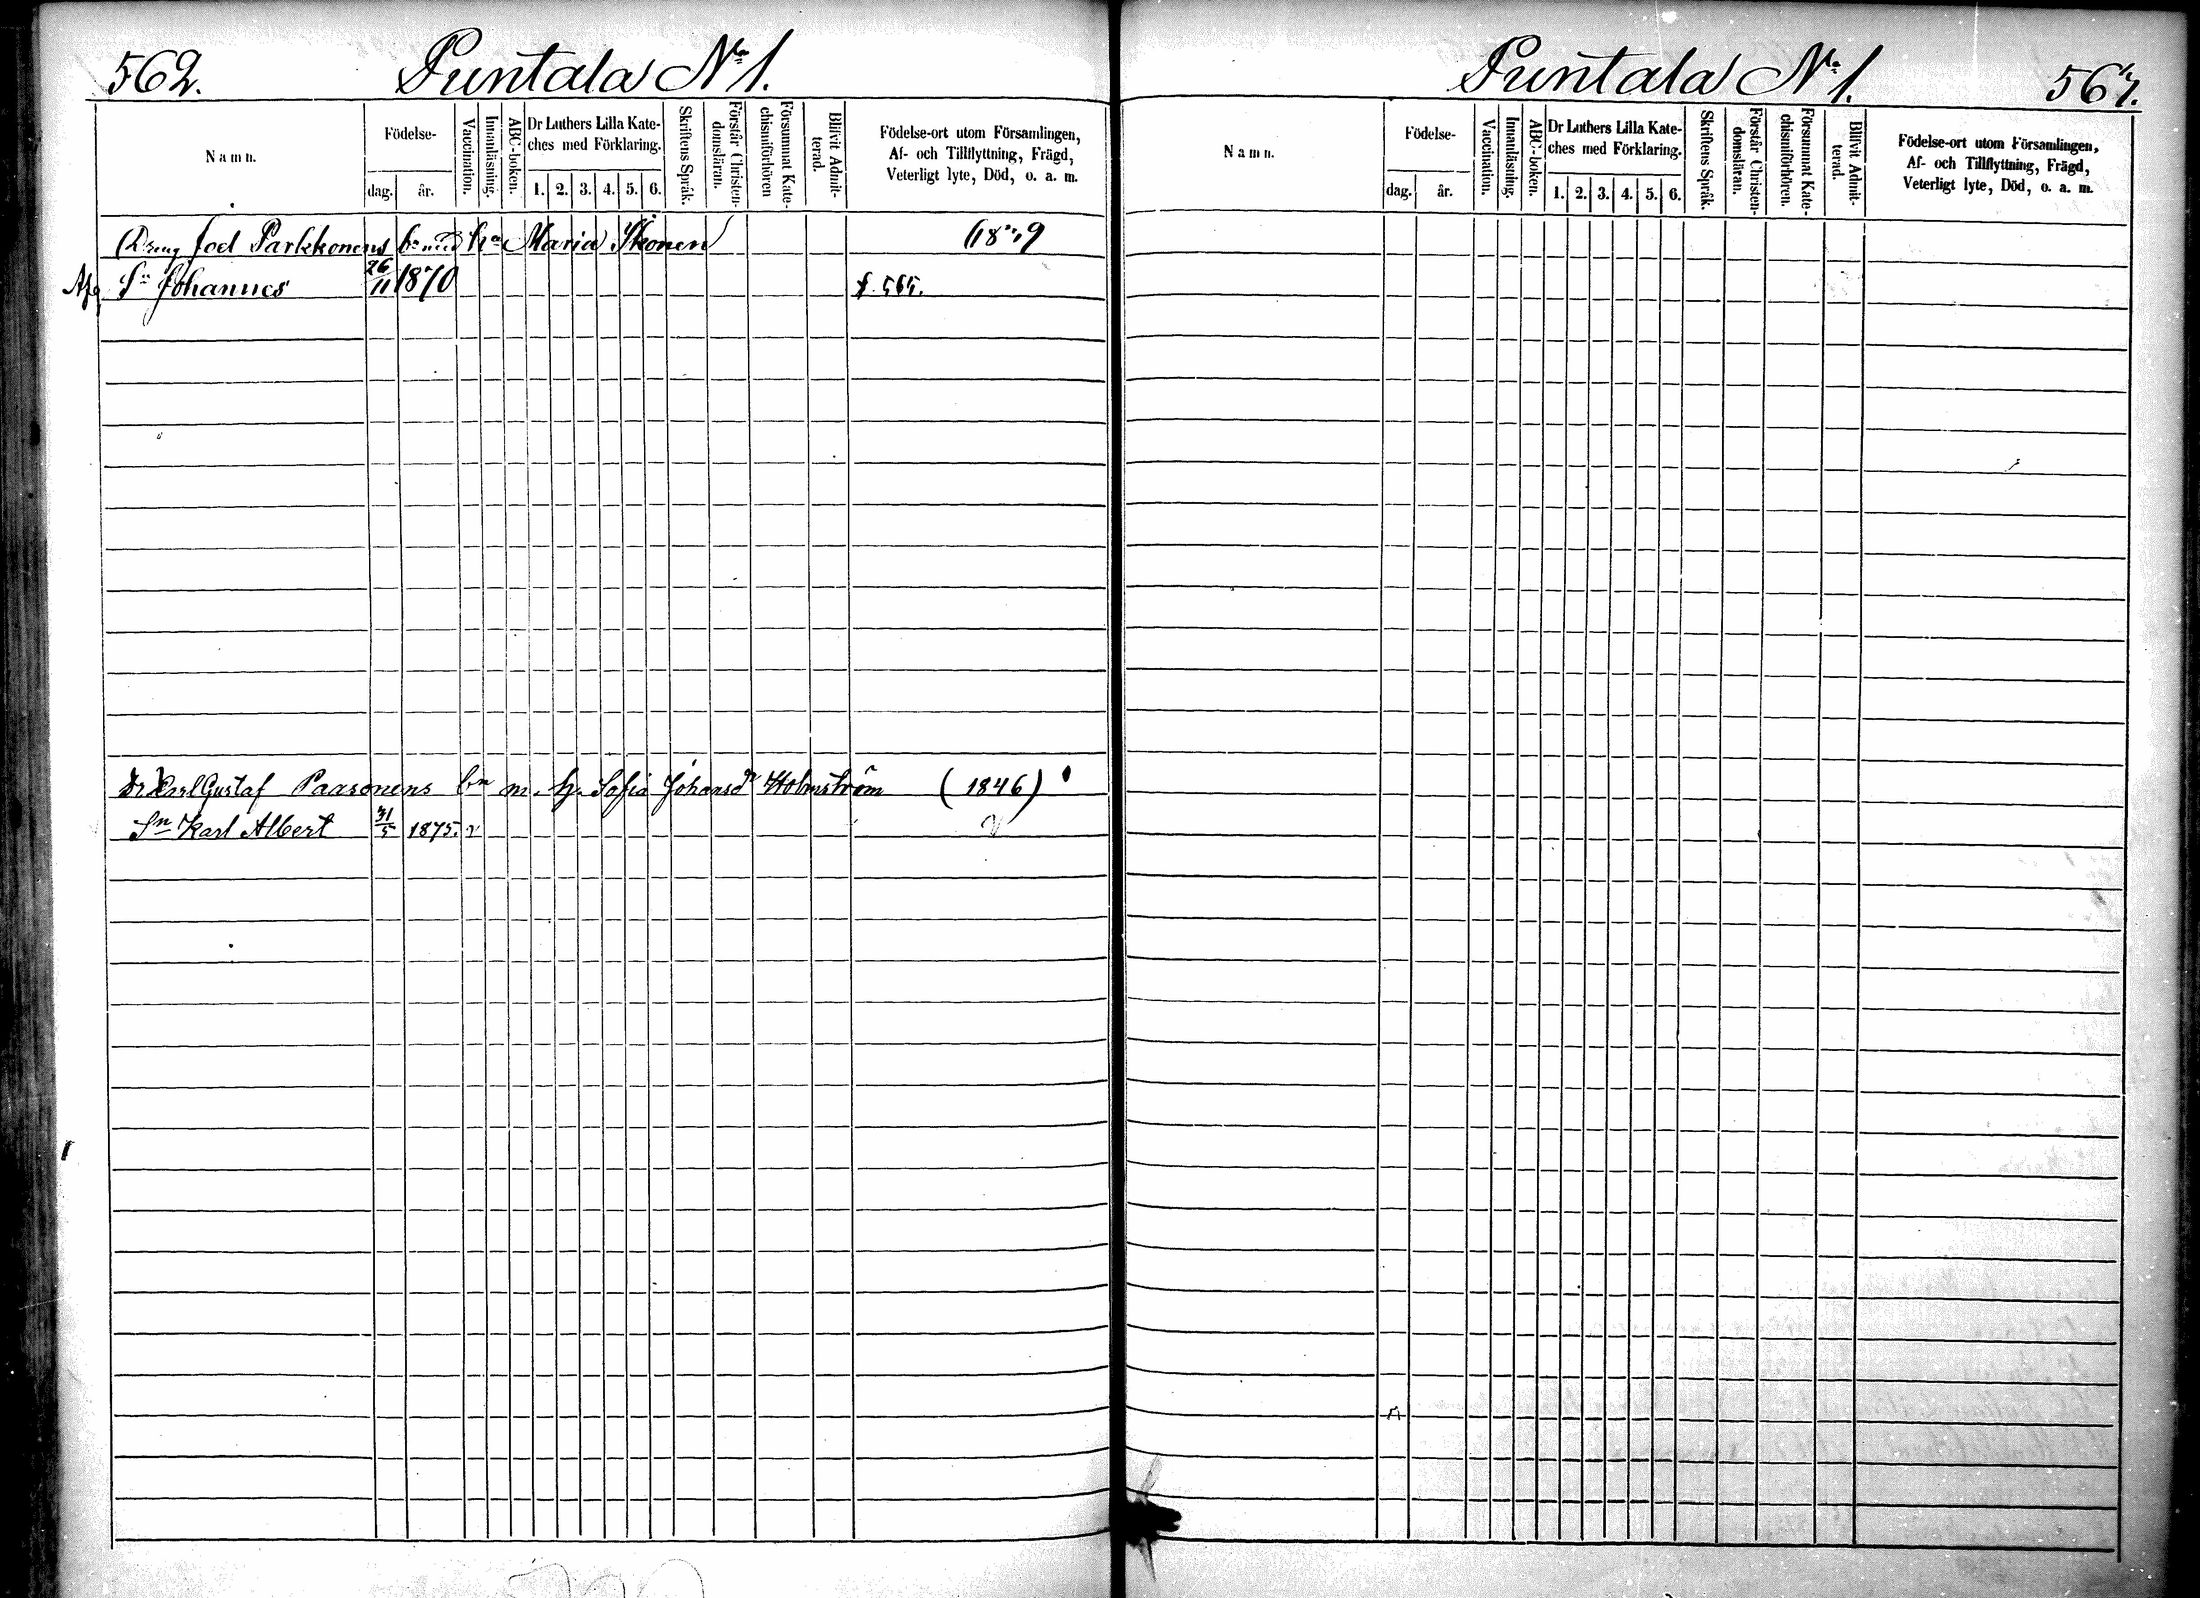 562. Puntala No 1.
Namn.
Födelse-
dag. år.
Vaccination.
Innanläsning.
ABC-boken.
Dr Luthers Lilla Kate-
ches med Förklaring.
1. 2. 3. 4. 5. 6.
Skriftens Språk.
Förstår Christen-
domsläran.
Försummat Kate-
chismiförhören
Blifvit Admit-
terad.
Födelse-ort utom Församlingen,
Af- och Tillflyttning, Frägd,
Veterligt lyte, Död, o. a. m.
Dreng Joel Parkkonens bn med ha Maria Ikonen
Sn Johannes 26/11 1870 f. 565.
Dr Karl Gustaf Paasonens bn m. h. Sofia Johansdr Holmström (1846)
Sn Karl Albert 31/5 1875. v
Puntala No 1.
Namn.
Födelse-
dag. år.
Vaccination.
Innanläsning.
ABC-boken.
Dr Luthers Lilla Kate-
ches med Förklaring.
1. 2. 3. 4. 5. 6.
Skriftens Språk.
Förstår Christen-
domsläran.
Försummat Kate-
chismiförhören.
Blifvit Admit-
terad.
Födelse-ort utom Församlingen,
Af- och Tillflyttning, Frägd,
Veterligt lyte, Död, o. a. m.